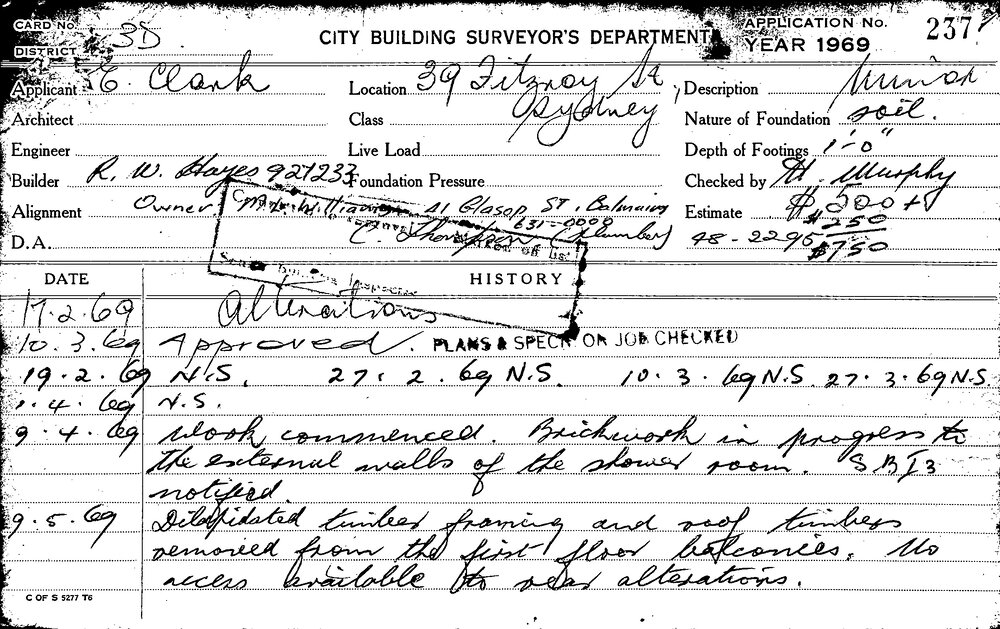 CARD No.
DISTRICT 3D
CITY BUILDING SURVEYOR'S DEPARTMENT
APPLICATION No. 237
YEAR 1969
Applicant E. Clark
Location 39 Fitzroy St, Sydney
Description Minor
Architect
Class
Nature of Foundation soil.
Engineer
Live Load
Depth of Footings 1'-0"
Builder R. W. Hayes 927233
Foundation Pressure
Checked by H. Murphy
Alignment
Owner M. Williams 41 Glasop ST. Balmain
631-0000
Estimate $500 +
$250
$750
D.A.
C. Thompson (Plumber)
48-2295
Senior Building Inspector
DATE
HISTORY
17.2.69 Alterations
10.3.69 Approved. PLANS & SPECN ON JOB CHECKED
19.2.69 N.S. 27.2.69 N.S. 10.3.69 N.S. 27.3.69 N.S.
1.4.69 N.S.
9.4.69 Work commenced. Brickwork in progress to
the external walls of the shower room. SBI3
notified.
9.5.69 Dilapidated timber framing and roof timbers
removed from the first floor balconies. No
access available to rear alterations.
C OF S 5277 T6